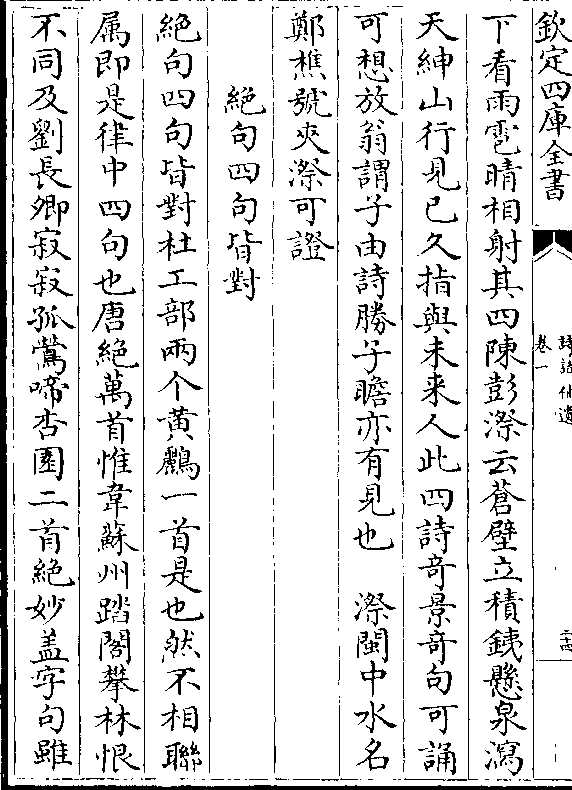 欽定四庫全書
詩話補遺
卷一
二十四
下看雨雹晴相射其四陳彭漈云蒼壁立積銕懸泉瀉
天紳山行見已久指與未来人此四詩竒景竒句可誦
可想放翁謂子由詩勝子瞻亦有見也 漈閩中水名
鄭樵號夾漈可證
絶句四句皆對
絶句四句皆對杜工部兩个黄鸝一首是也然不相聯
属即是律中四句也唐絶萬首惟韋蘇州踏閣攀林恨
不同及劉長卿寂寂孤鶯啼杏園二首絶妙盖字句雖